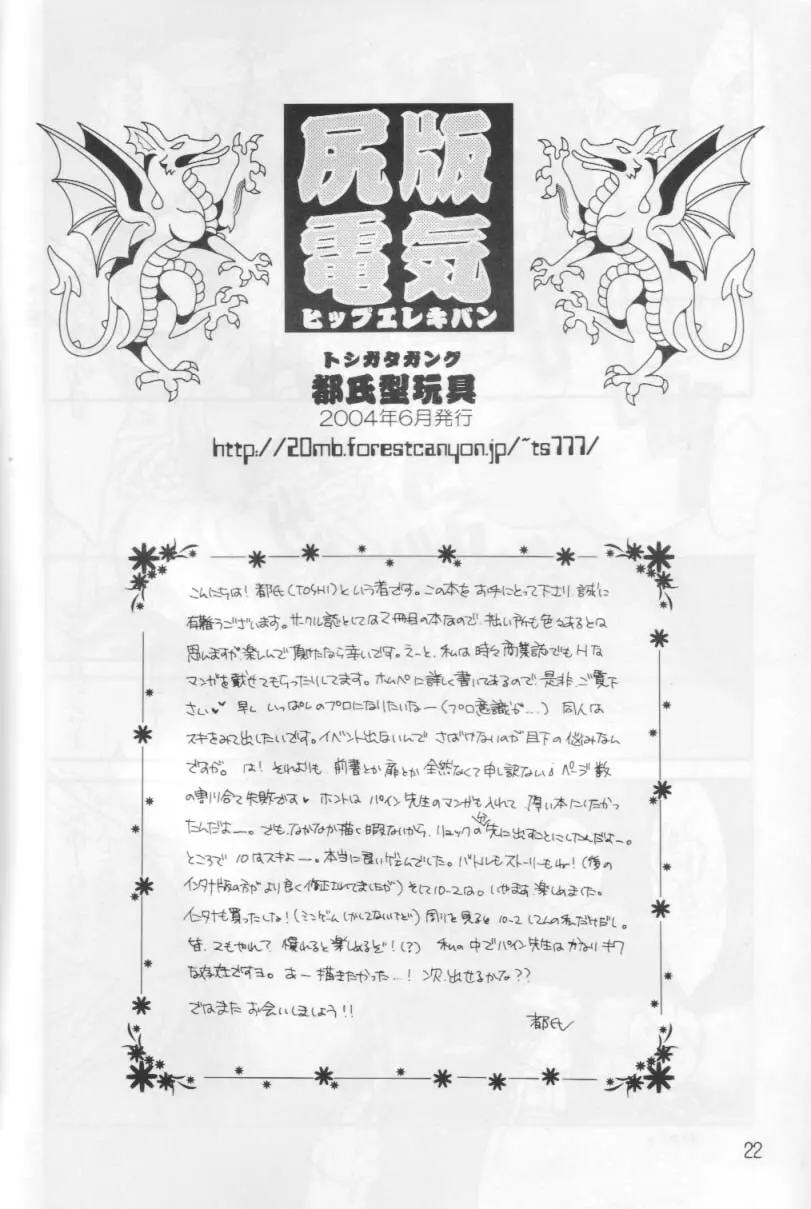 尻版
電気
ヒップエレキバン
トシガタガング
都氏型玩具
2004年6月発行
http://20mb.forestcanyon.jp/~ts777/
こんにちは!都氏(TOSHI)という者です。この本をお手にとって下さり 誠に
有難うございます。サークル誌としては2冊目の本なので、拙い所も色々あるとは
思いますが楽しんで頂けたなら幸いです。えーと、私は時々商業誌でもHな
マンガを載せてもらったりしてます。ホムペに詳しく書いてあるので是非ご覧下
さい♥ 早く いっぱしのプロになりたいなー(プロ意識が…) 同人は
スキをみて出したいです。イベント出ないんで さばけないのが目下の悩みなん
ですが。は!それよりも 前書とか扉とか全然なくて申し訳ない ページ数
の割り合て失敗です♥ ホントは パイン先生のマンガも入れて 厚い本にしたかっ
たんだよー。でも、なかなか描く暇ないから、リュックの先に出すことにしたんだよー。
ところで 10はスキよー。本当に良いゲームでした。バトルもストーリーもね!(後の
インタナ版の方がより良く修正されてましたが)そして10-2は。いやます楽しめました。
インタナも買ったしな!(ミニゲームしかしてないけど)周りを見ると10-2してんの私だけだし。
皆、2もやれって 慣れると楽しめるぞ!(?) 私の中でパイン先生はかなりキワ
な存在ですヨ。あー描きたかった…!次、出せるかな??
ではまた お会いしましょう!!
都氏
22